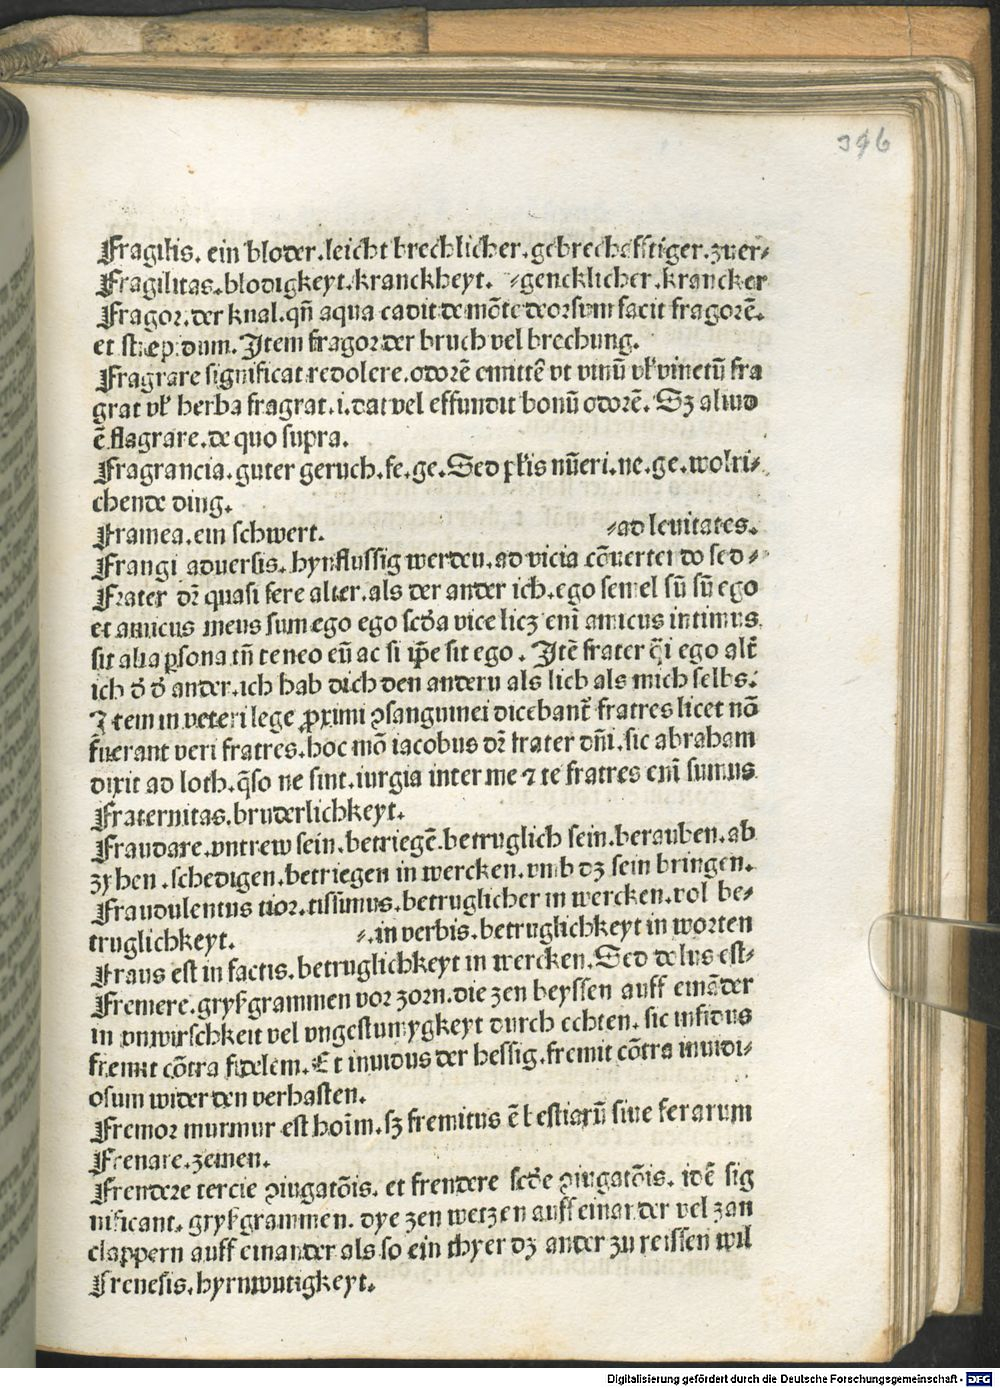 396
Fragilis. ein bloder. leicht brechlicher. gebrechefftiger. zuer⸗
Fragilitas. blodigkeyt. kranckheyt. ⸗gencklicher. krancker
Fragor. der knal. qñ aqua cadit de mõte deorsum facit fragorẽ.
et strepidum. Item fragor der bruch vel brechung.
Fragrare significat redolere. odorẽ emittẽ vt vinũ vł vinetũ fra
grat vł herba fragrat. i. dat vel effundit bonũ odorẽ. Sꝫ aliud
ẽ flagrare. de quo supra.
Fragrancia. guter geruch. fe. ge. Sed płis nũeri. ne. ge. wolri⸗
chende ding.
Framea. ein schwert. ⸗ad leuitates.
Frangi aduersis. hynflussig werden. ad vicia cõuertei do sed⸗
Frater dr̃ quasi fere alter. als der ander ich. ego semel sũ sũ ego
et amicus meus sum ego ego scďa vice licz enĩ amicus intimus
sit alia ꝑsona tñ teneo eũ ac si ip̃e sit ego. Itẽ frater q̃i ego alt̃
ich ď ď ander. ich hab dich den andern als lieb als mich selbs.
Item in veteri lege ꝓximi ꝯsanguinei dicebant̃ fratres licet nõ
fuerant veri fratres. hoc mõ iacobus dr̃ frater dñi. sic abraham
dixit ad loth. q̃so ne sint. iurgia inter me ⁊ te fratres enĩ sumus
Fraternitas. bruderlichkeyt.
Fraudare. vntrew sein. betriegẽ. betruglich sein. berauben. ab
zyhen. schedigen. betriegen in wercken. vmb dꝫ sein bringen.
Fraudulentus tior. tissimus. betruglicher in wercken. vol be⸗
truglichkeyt. ⸗. in verbis. betruglichkeyt in worten
Fraus est in factis. betruglichkeyt in wercken. Sed dolus est⸗
Fremere. gryßgrammen vor zorn. die zen beyssen auff einãder
in vnwirschkeit vel vngestumygkeyt durch echten. sic infidus
fremit cõtra fidelem. Et inuidus der hessig. fremit cõtra inuidi⸗
osum wider den verhasten.
Fremor murmur est hoĩm. sꝫ fremitus ẽ bestiarũ siue ferarum
Frenare. zemen.
Frendere tercie ꝯiugatõis. et frendere scďe ꝯiugatõis. idẽ sig
nificant. gryßgrammen. dye zen wetzen auff einander vel zan
clappern auff einander als so ein thyer dꝫ ander zu reissen wil
Frenesis. hyrnwutigkeyt.
Digitalisierung gefördert durch die Deutsche Forschungsgemeinschaft - DFG